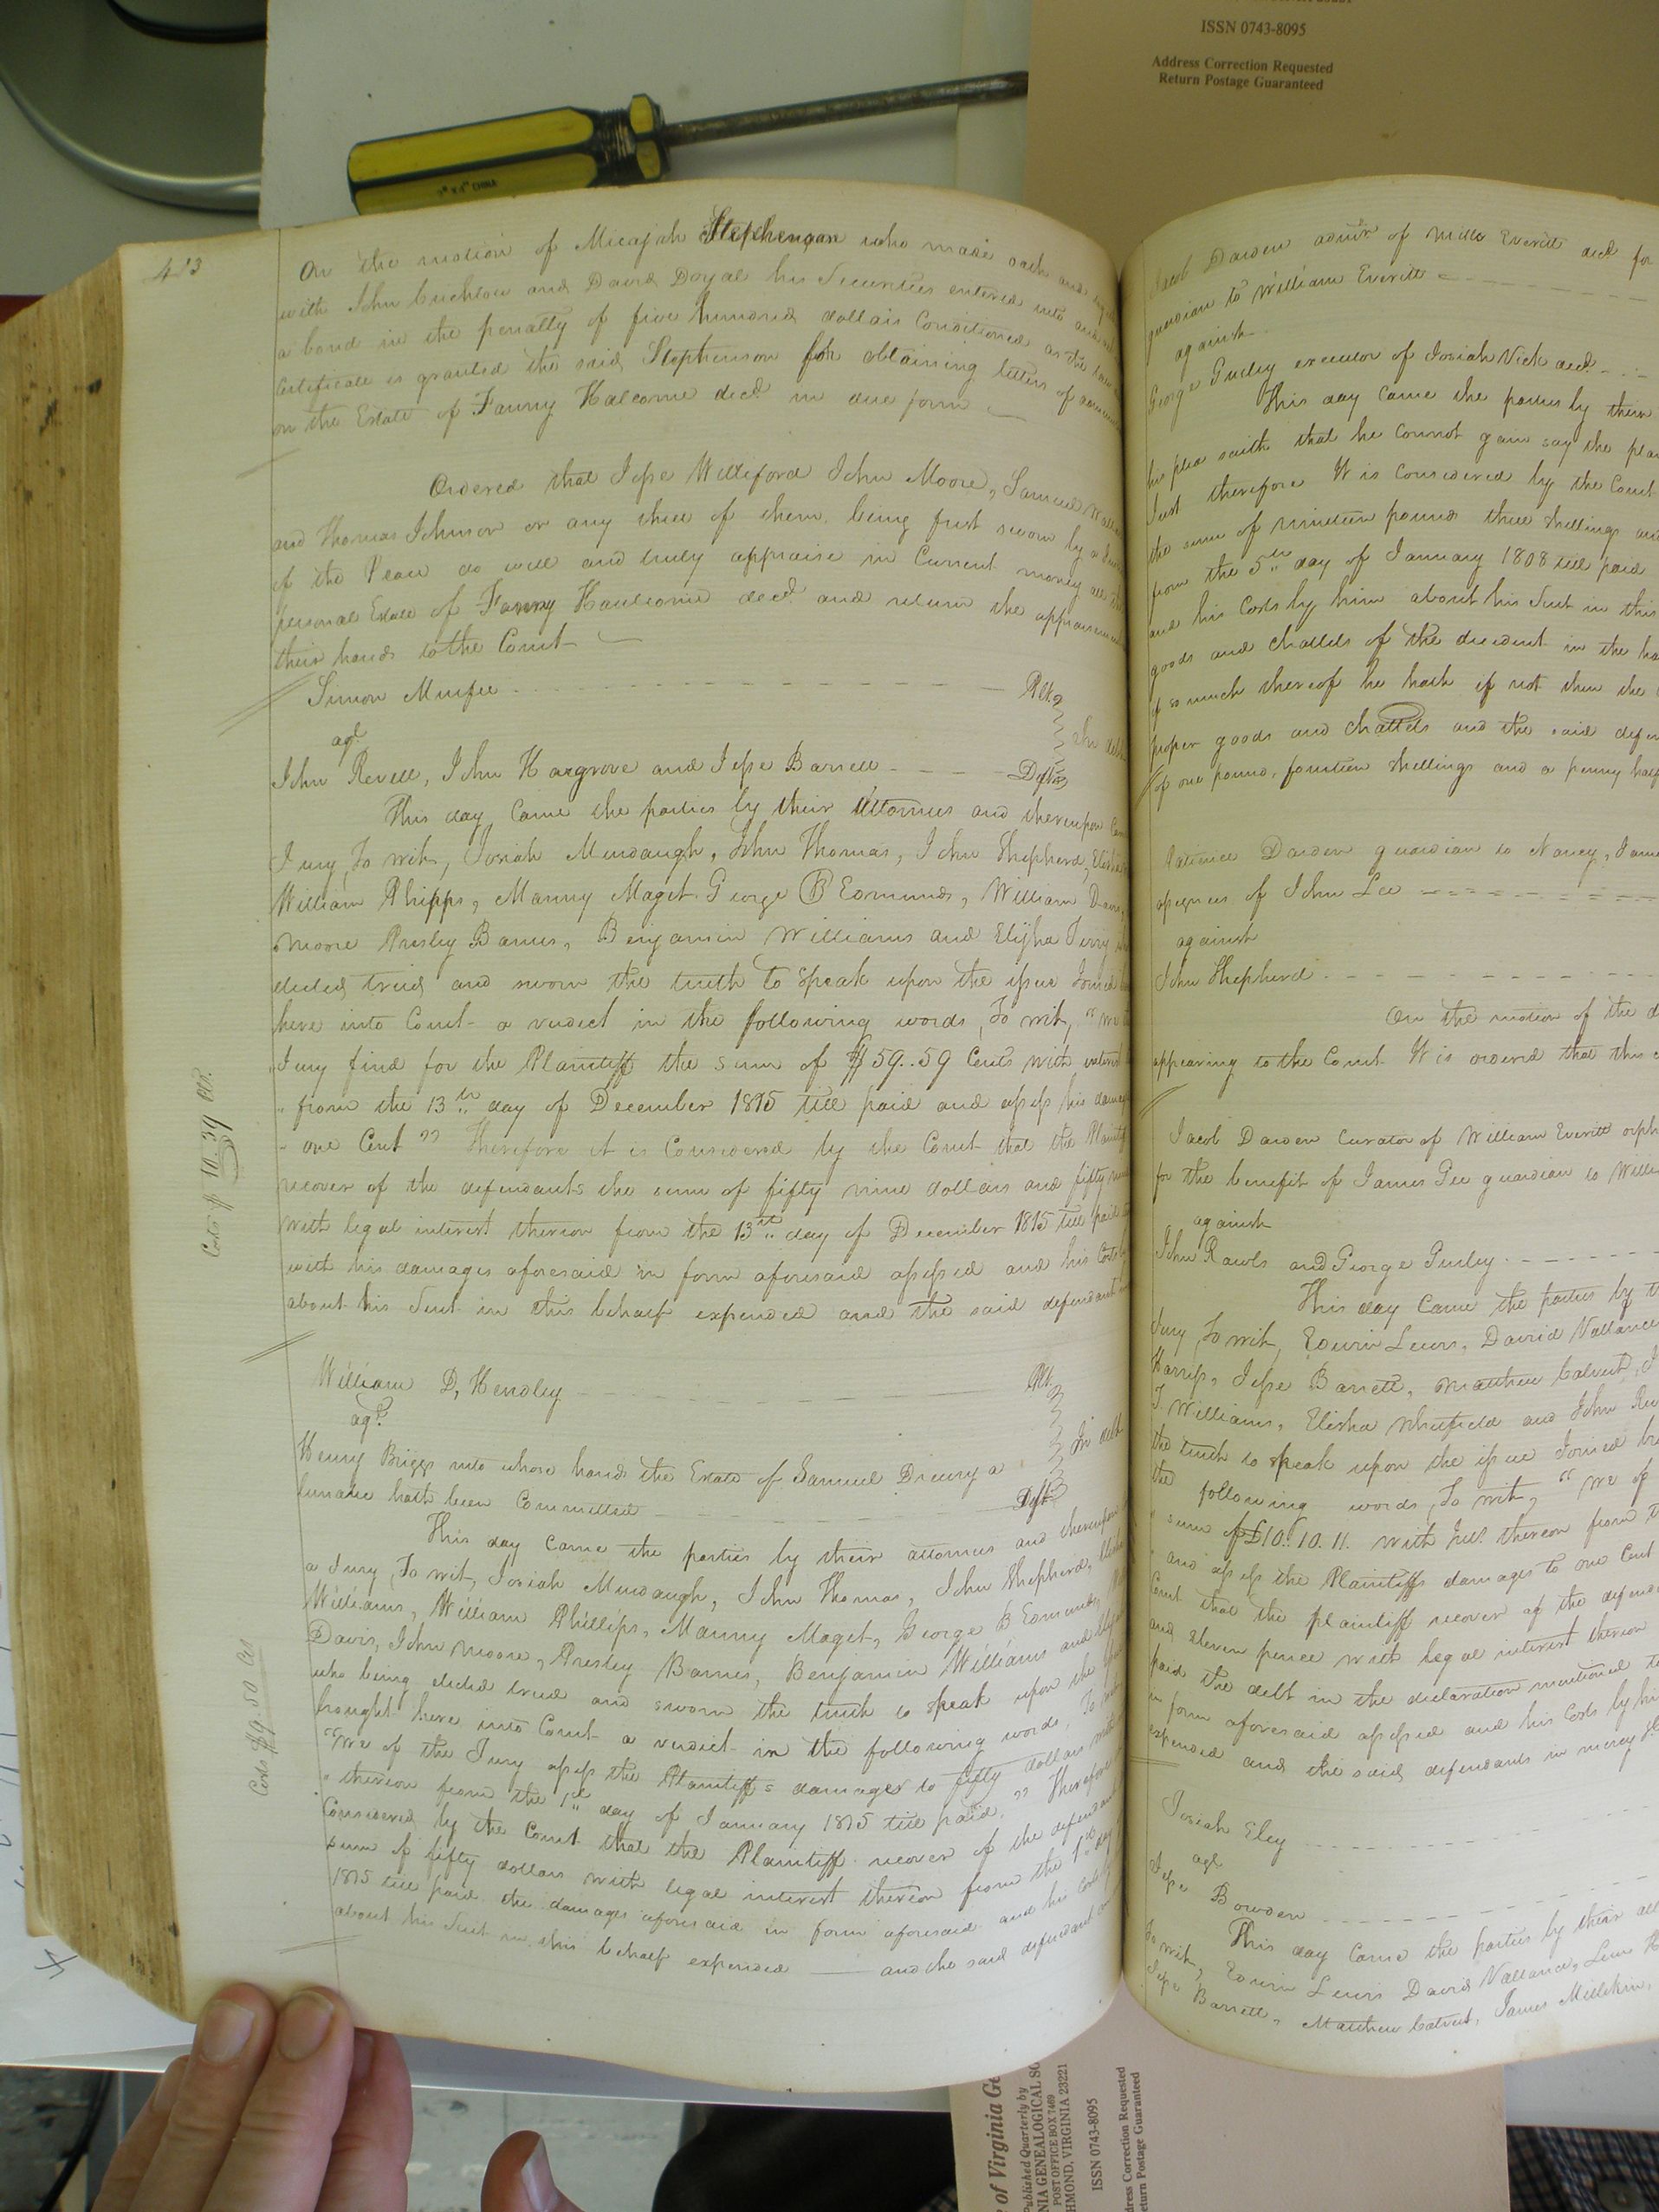 ISSN 0743-8095
Address Correction Requested
Return Postage Guaranteed
CHINA
On the motion of Micajah Stephenson who made oath and
with John and David Doyal his Securities entered into and
a bond in the penalty of five hundred dollars Conditioned as the law
Certificate is granted the said Stephenson for obtaining letters of
on the Estate of Fanny Halcome decd. in due form
Ordered that Jesse Williford John Moore, Samuel
and Thomas Johnson or any three of them, being first sworn by a
of the Peace do well and truly appraise in Current money all the
personal Estate of Fanny decd. and return the
their hands to the Court
Simon Murfee Plt.
agt.
In debt
John Revell, John Hargrove and Jesse Barrett Defts
This day Came the parties by their Attornies and thereupon Came
Jury, To wit, Josiah Murdaugh, John Thomas, John Shepherd, Elisha
William Phipps, Manny Maget. George B Edmunds, William Davis,
Moore Presley Barnes, Benjamin Williams and Elijha
elected tried and sworn the truth to Speak upon the issue Joined
here into Court a verdict in the following words, To wit, "We
"Jury find for the Plaintiff the sum of $59..59 Cents with interest
" from the 13th day of December 1815 till paid and assess his damages
" one Cent " Therefore it is Considered by the Court that the Plaintiff
recover of the defendants the sum of fifty nine dollars and fifty nine
with legal interest thereon from the 13th day of December 1815 till paid
with his damages aforesaid in form aforesaid assessed and his Costs by
about his Suit in this behalf expended and the said defendants
Costs $ 10.39
William D, Hendley Plt.
agt.
In debt
Henry Briggs into whose hands the Estate of Samuel Drewry a
lunatic hath been Committed Deft
This day came the parties by their attornies and thereupon
a Jury, To wit, Josiah Murdaugh, John Thomas, John Shepherd, Elisha
Williams, William Phillips, Manny Maget, George B Edmunds,
Davis, John Moore, Presley Barnes, Benjamin Williams and
who being elected tried and sworn the truth to speak upon the
brought here into Court a verdict in the following words, To
"We of the Jury assess the Plaintiffs damages to fifty dollars with
" thereon from the 1st day of January 1815 till paid. " Therefore
Considered by the Court that the Plaintiff recover of the defendant
sum of fifty dollars with legal interest thereon from the 1st day
1815 till paid the damages aforesaid in form aforesaid and his Costs
about his Suit in this behalf expended and the said defendant
Costs $9.50
Jacob Darden admr. of Mills Everitt decd for
guardian to William Everitt
against
George Gurley executor of Josiah Vick decd.
This day Came the parties by their
his plea saith that he Connot gain say the
Just therefore It is Considered by the Court
the sum of nineteen pounds three shillings and
from the 5th day of January 1808 till paid
and his Costs by him about his Suit in this
goods and chattels of the decedent in the
if so much thereof he hath if not then the
proper goods and chattels and the said
of one pound, fourteen shillings and a penny half
Patience Darden guardian to Nancy,
assignees of John Lee
against
John Shepherd
On the motion of the
appearing to the Court It is ordered that this
Jacob Darden Curator of William Everitt
for the benefit of James Gee guardian to
against
John Rawls and George Gurley
This day Came the parties by
Jury, To wit, Edwin Lewis, David Vallance
Harriss, Jesse Barrett, Matthew Calvert,
J. Williams, Elisha Whitfield and John
the truth to speak upon the issue Joined
the following words, To wit, "We of
" sum of £10.10.11. with Int. thereon from
" and assess the Plaintiffs damages to one Cent
Court that the plaintiff recover of the
and eleven pence with legal interest thereon
paid the debt in the declaration mentioned
in form aforesaid assessed and his Costs by
expended and the said defendants in mercy
Josiah Eley
agt
Jesse Bowden
This day Came the parties by their
To wit, Edwin Lewis David Vallance,
Jesse Barrett, Matthew Calvert, James Millikin,
of Virginia
Published Quarterly by
GENEALOGICAL
POST OFFICE BOX 7469
VIRGINIA 23221
ISSN 0743-8095
Address Correction Requested
Return Postage Guaranteed